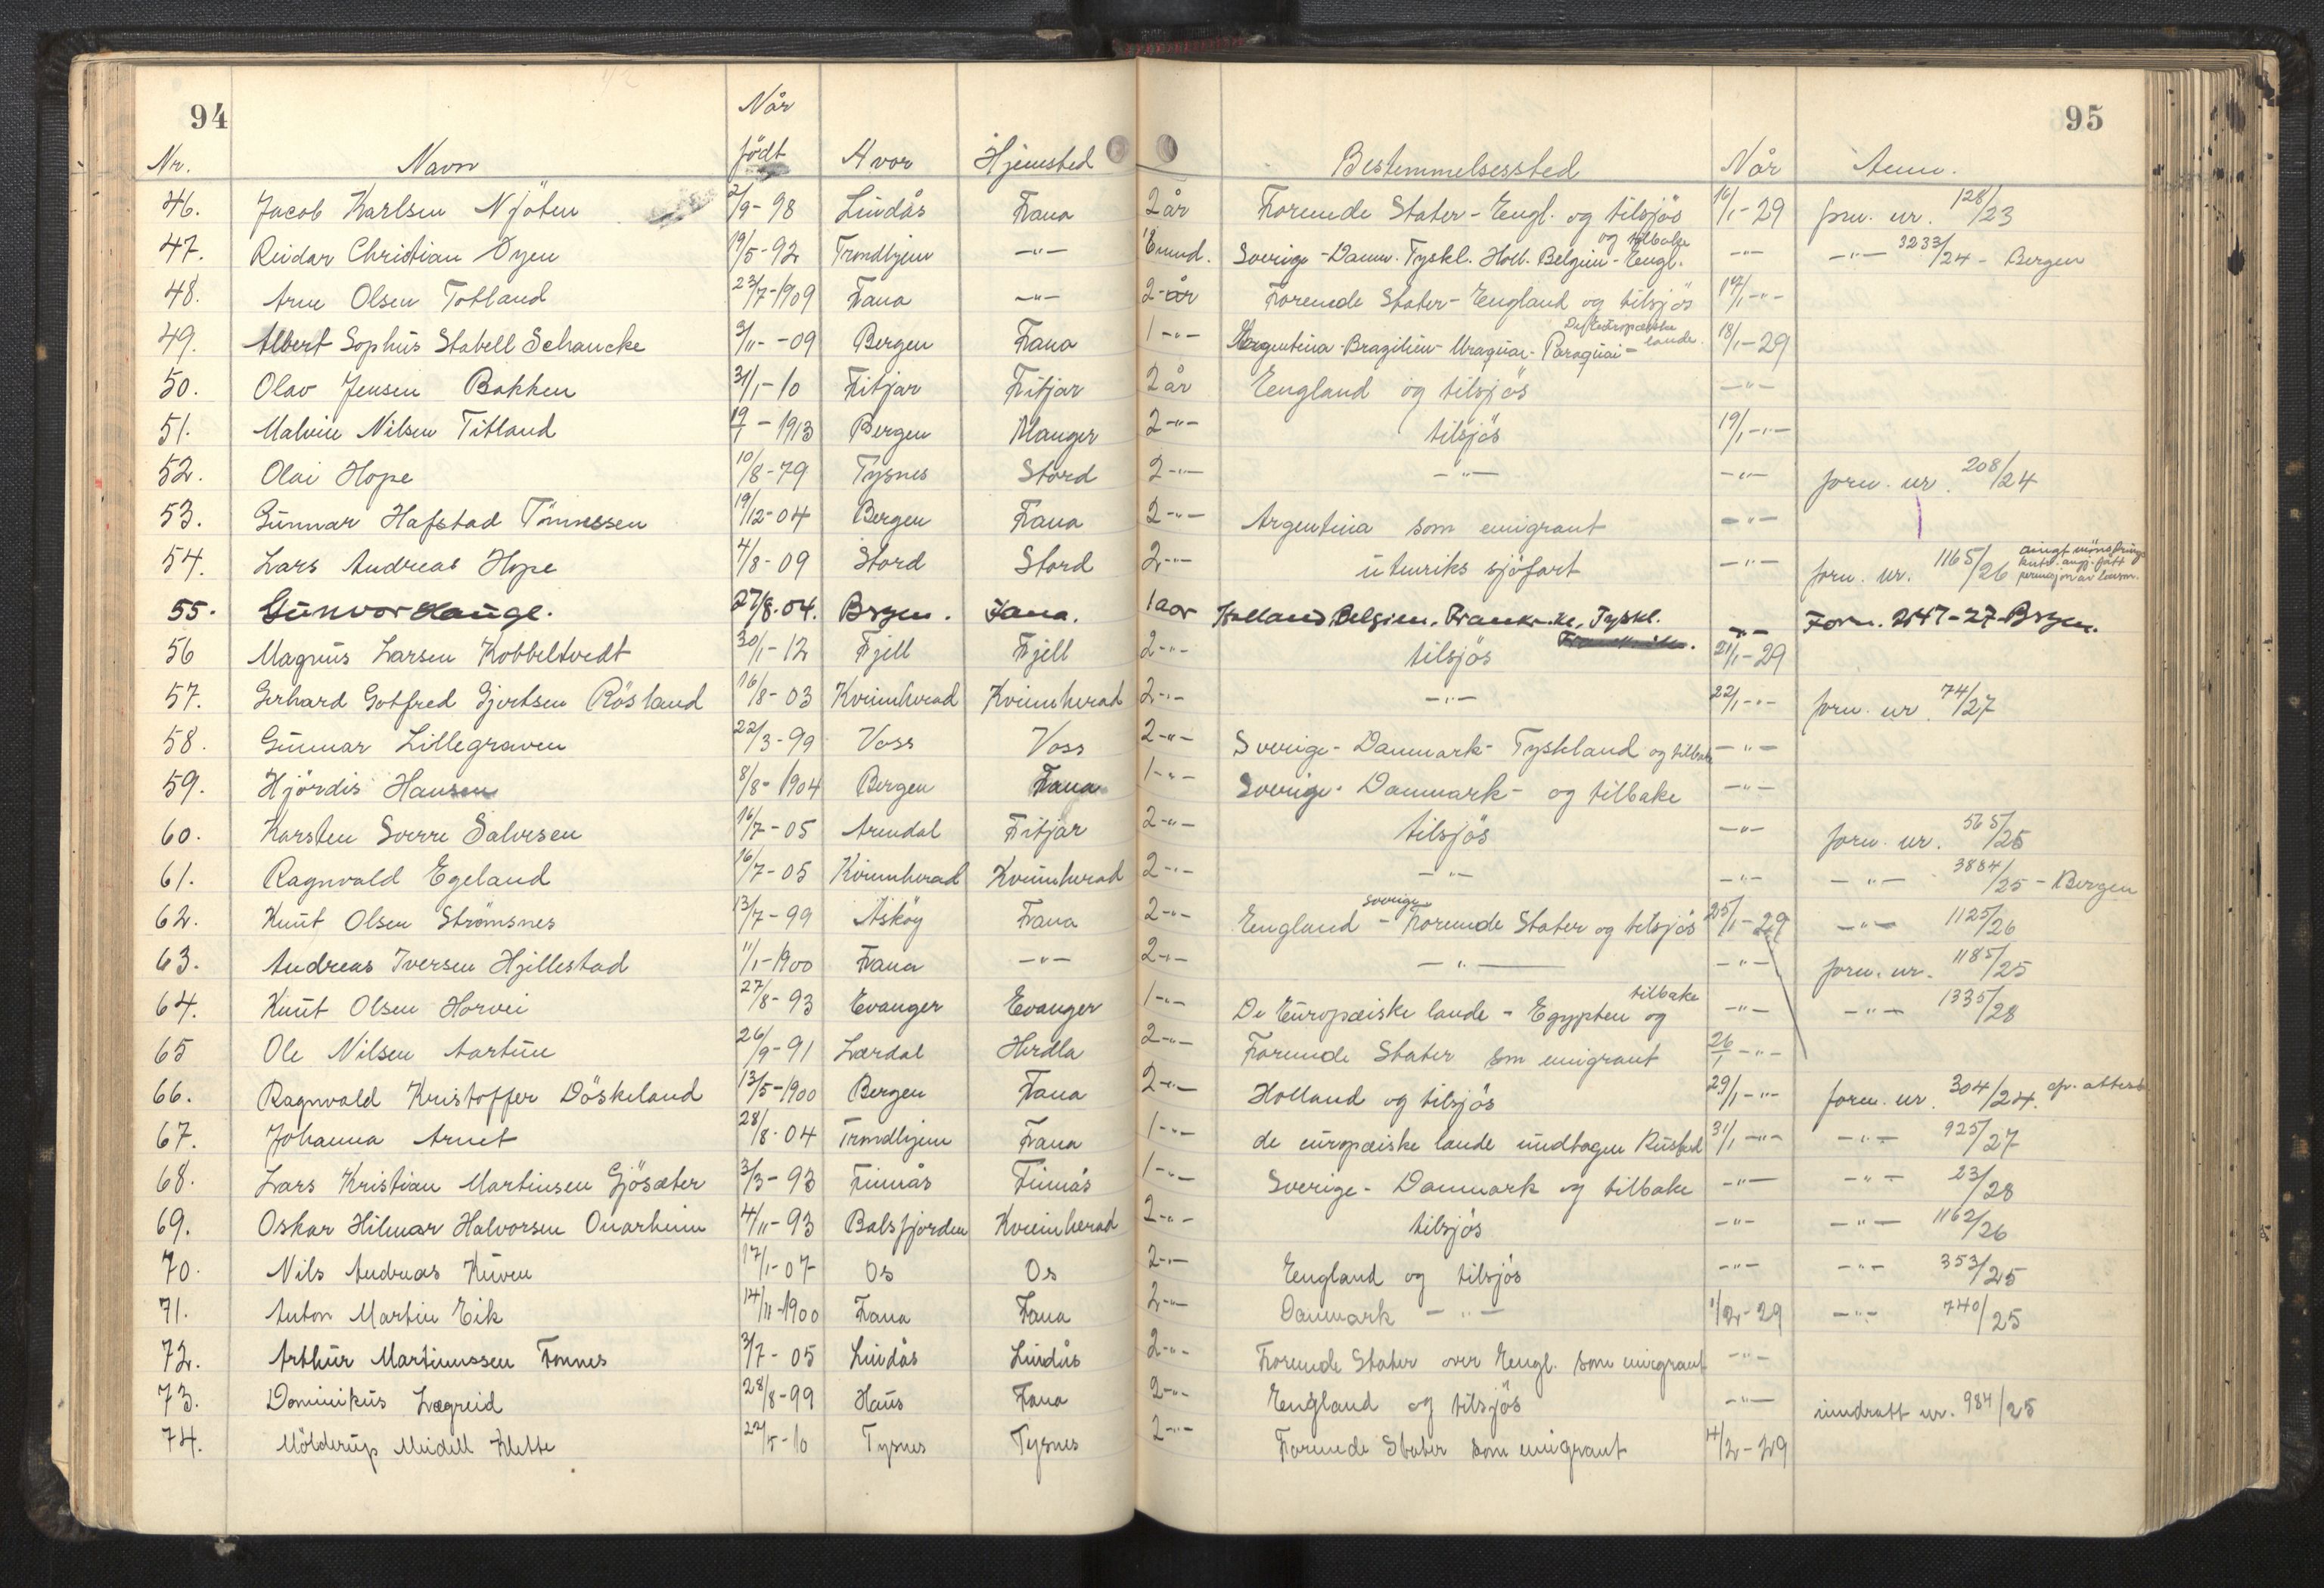 94
95
Når
Nr. Navn födt Hvor Hjemsted Bestemmelsessted Når Anm.
46. Jacob Karlsen Njöten 2/9-98 Lindås Fana 2 år Forenede Stater - Engl. og tilsjös 16/1-29 forn. nr. 128/23
og tilbake
47. Reidar Christian Öyen 19/5-92 Trondhjem -"- Sverige - Danm. Tyskl. Holl. Belgien - Engl. -"- -"- 3233/24 - Bergen
48. Arne Olsen Totland 23/7-1909 Fana -"- 2-år Forenede Stater - England og tilsjös 17/1-"-
De Europæiske
49. Albert Sophus Stabell Schancke 3/11--09 Bergen Fana 1-"- Argentina - Brazilien - Uraguai - Paraguai - lande. 18/1-29
50. Olav Jensen Bakken 31/1-10 Fitjar Fitjar 2 år England og tilsjös -"-
51. Malvin Nilsen Titland 19/1-1913 Bergen Manger 2-"- tilsjös 19/1-"-
52. Olai Hope 10/8-79 Tysnes Stord 2-"- -"- -"- forn. nr. 208/24
53. Gunnar Hafstad Tönnessen 19/12-04 Bergen Fana 2-"- Argentina som emigrant -"-
54. Lars Andreas Hope 4/8-09 Stord Stord 2-"- utenriks sjöfart -"- forn. nr. 1165/26
55. Gunvor Hauge. 27/8.04. Brgen. Fana. 1 aar Holland, Belgien, Frankrike, Tyskl. -"- Forn. 2147-27-Brgen.
56 Magnus Larsen Kobbeltvedt 30/1-12 Fjell Fjell 2-"- tilsjös 21/1-29
57. Gerhard Gotfred Gjertsen Rösland 16/8-03 Kvinnherad Kvinnherad 2-"- -"- 22/1-"- forn. nr. 74/27
58. Gunnar Lillegraven 22/3-99 Voss Voss 2-"- Sverige - Danmark - Tyskland og tilbake -"-
59. Hjördis Hansen 8/8-1904 Bergen Fana 1-"- Sverige - Danmark - og tilbake -"-
60. Karsten Sverre Salvesen 16/7-05 Arendal Fitjar 2-"- tilsjös -"- forn. nr. 565/25
61. Ragnvald Egeland 16/7-05 Kvinnherad Kvinnherad 2-"- -"- -"- -"- 3884/25 - Bergen
Sverige
62. Knut Olsen Strömsnes 13/7-99 Asköy Fana 2-"- England - Forenede Stater og tilsjös 25/1-29 -"- 1125/26
63. Andreas Iversen Hjellestad 11/1-1900 Fana -"- 2-"- -"- -"- forn. nr. 1185/25
tilbake
64. Knut Olsen Horvei 27/8-93 Evanger Evanger 1-"- De Europæiske lande - Egypten og -"- -"- 1335/28
65 Ole Nilsen Aartun 26/9-91 Lærdal Herdla 2-"- Forenede Stater som emigrant 26/1-"-
66. Ragnvald Kristoffer Döskeland 13/5-1900 Bergen Fana 2-"- Holland og tilsjös 29/1-"- forn. nr. 304/24.
67. Johanna Arnet 28/8-04 Trondhjem Fana 1-"- de europæiske lande undtagen Rusland 31/1-"- -"- 925/27
68. Lars Kristian Martinsen Gjösæter 3/3-93 Finnås Finnås 1-"- Sverige - Danmark og tilbake -"- -"- 23/28
69. Oskar Hilmar Halvorsen Onarheim 4/11-93 Balsfjorden Kvinnherad 2-"- tilsjös -"- -"- 1162/26
70. Nils Andreas Kuven 17/1-07 Os Os 2-"- England og tilsjös -"- -"- 353/25
71. Anton Martin Eik 14/11-1900 Fana Fana 2-"- Danmark -"- 1/2-29 -"- 740/25
72. Arthur Martinussen Fonnes 3/7-05 Lindås Lindås 2-"- Forenede Stater over Engl. som emigrant -"-
73. Dominikus Lægreid 28/8-99 Haus Fana 2-"- England og tilsjös -"- inndratt nr. 984/25
74. Mölderup Meidell Klette 22/5-10 Tysnes Tysnes 2-"- Forenede Stater som emigrant 4/2-29